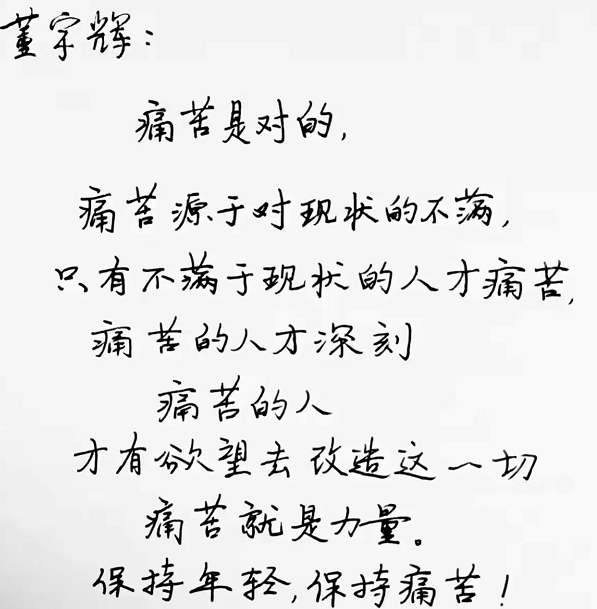 董宗辉：
痛苦是对的，
痛苦源于对现状的不满，
只有不满于现状的人才痛苦，
痛苦的人才深刻
痛苦的人
才有欲望去改造这一切
痛苦就是力量。
保持年轻，保持痛苦！